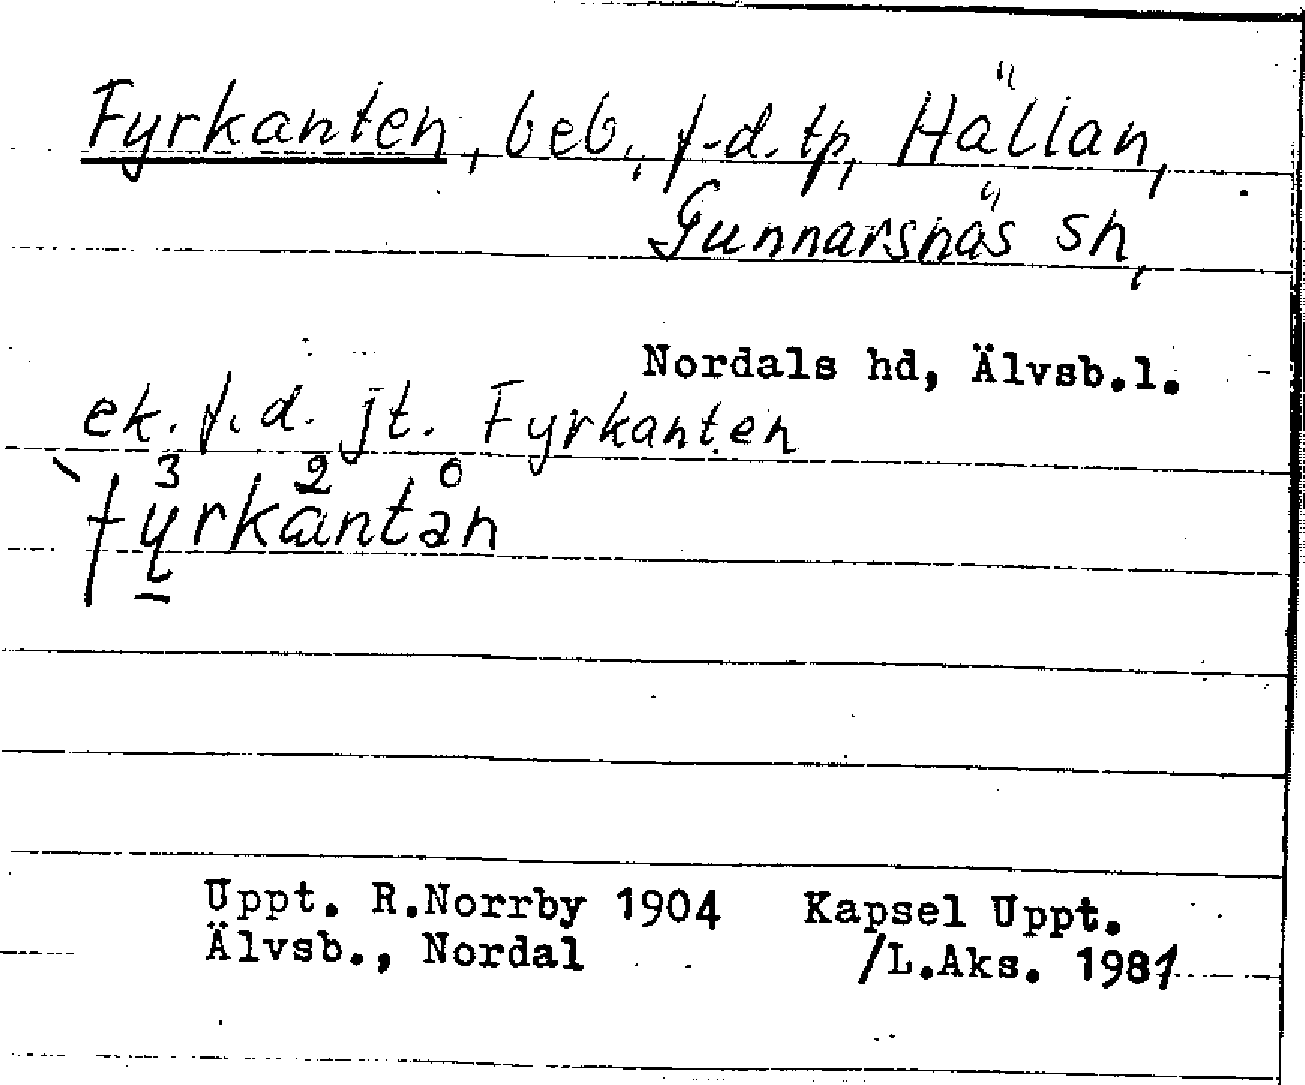 Fyrkanten, beb., f.d. tp, Hällan,
Gunnarsnäs sn,
Nordals hd, Älvsb.l.
ek. f.d. jt. Fyrkanten
3 2 0
`fyrkantən
Uppt. R.Norrby 1904 Kapsel Uppt.
Älvsb., Nordal /L.Aks. 1981